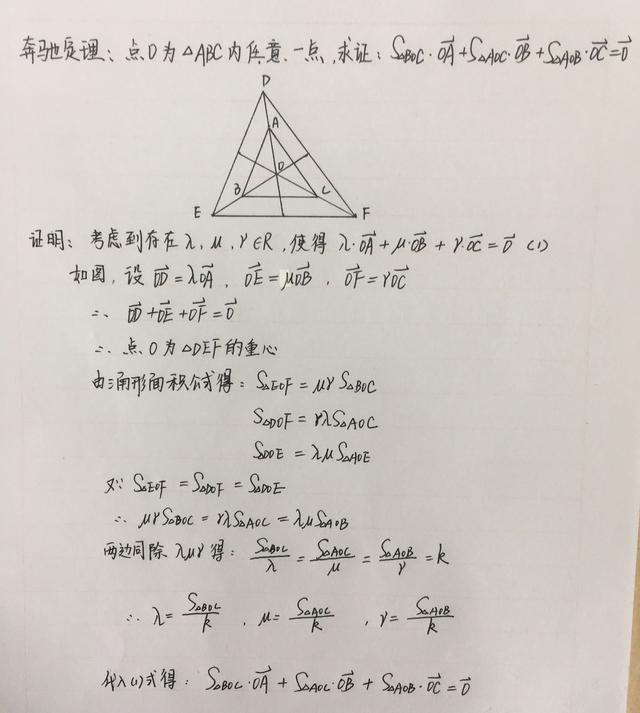 奔驰定理：点O为△ABC内任意一点，求证：S△BOC·OA→+S△AOC·OB→+S△AOB·OC→=0→
D
A
O
B C
E F
证明：考虑到存在λ，μ，γ∈R，使得 λ·OA→+μ·OB→+γ·OC→=0→ (1)
如图，设 OD→=λOA→，OE→=μOB→，OF→=γOC→
∴ OD→+OE→+OF→=0→
∴ 点O为△DEF的重心
由三角形面积公式得：S△EOF=μγS△BOC
S△DOF=γλS△AOC
S△DOE=λμS△AOE
又∵ S△EOF=S△DOF=S△DOE
∴ μγS△BOC=γλS△AOC=λμS△AOB
两边同除λμγ得：S△BOC/λ=S△AOC/μ=S△AOB/γ=k
∴ λ=S△BOC/k，μ=S△AOC/k，γ=S△AOB/k
代入(1)式得：S△BOC·OA→+S△AOC·OB→+S△AOB·OC→=0→